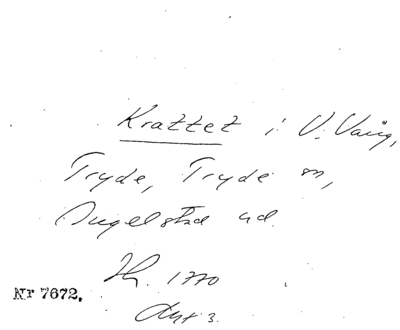 Krattet i V. Vång,
Tryde, Tryde sn,
Ingelstad hd.
1770
Nr 7672.
Akt 3.